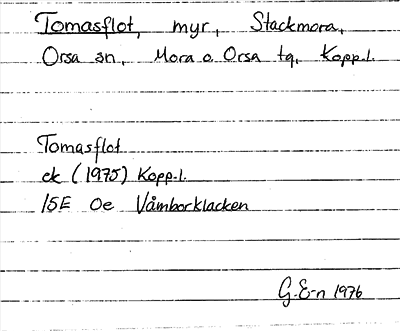 Tomasflot, myr, Stackmora,
Orsa sn, Mora o. Orsa tg, Kopp.l.
Tomasflot
ek (1975) Kopp.l.
15E Oe Våmborklacken
G.E-n 1976